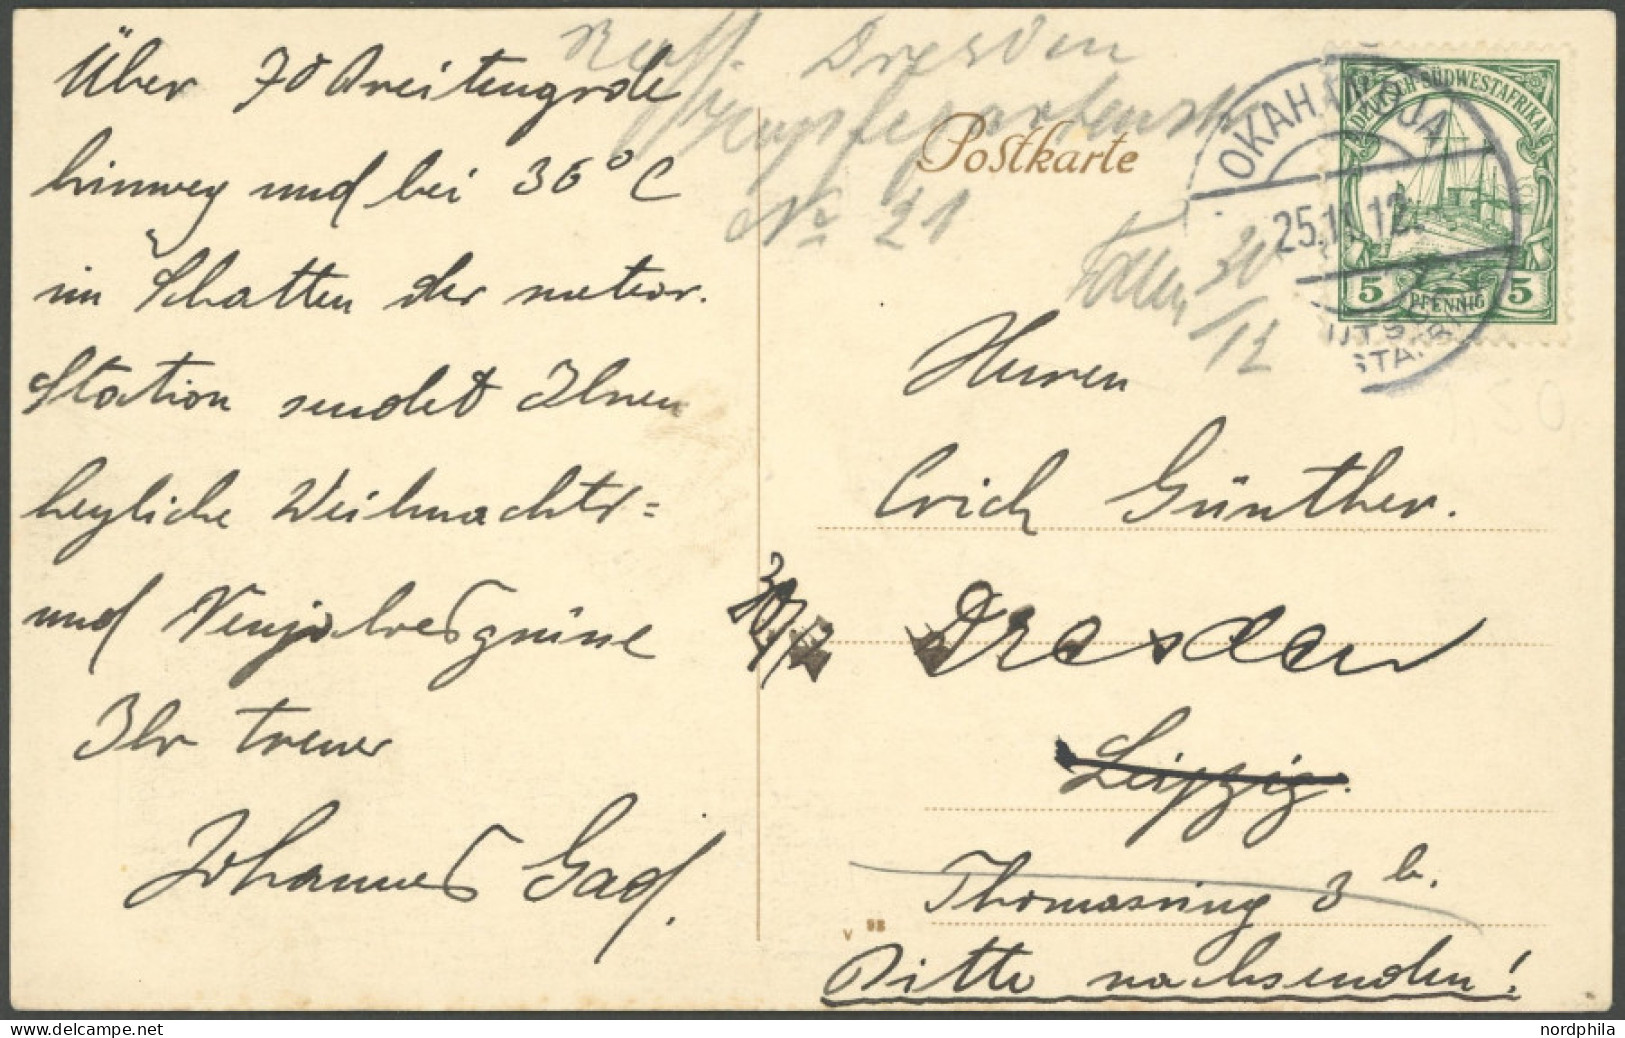 Über 70 Breitengrde
hinweg und bei 36° C
im Schatten der meteor.
Station sendet Ihnen
herzliche Weihnachts=
und Neujahrsgrüsse
Ihr treuer
Johannes Gad.
Dresden
No 21
30
/12
Postkarte
OKAHANDJA
25.11.12.
DEUTSCH-SÜDWESTAFRIKA
5 PFENNIG 5
Herren
Erich Günther.
30/12
Dresden
Leipzig.
Thomasring 3 b.
Bitte nachsenden!
V 98
nordphila